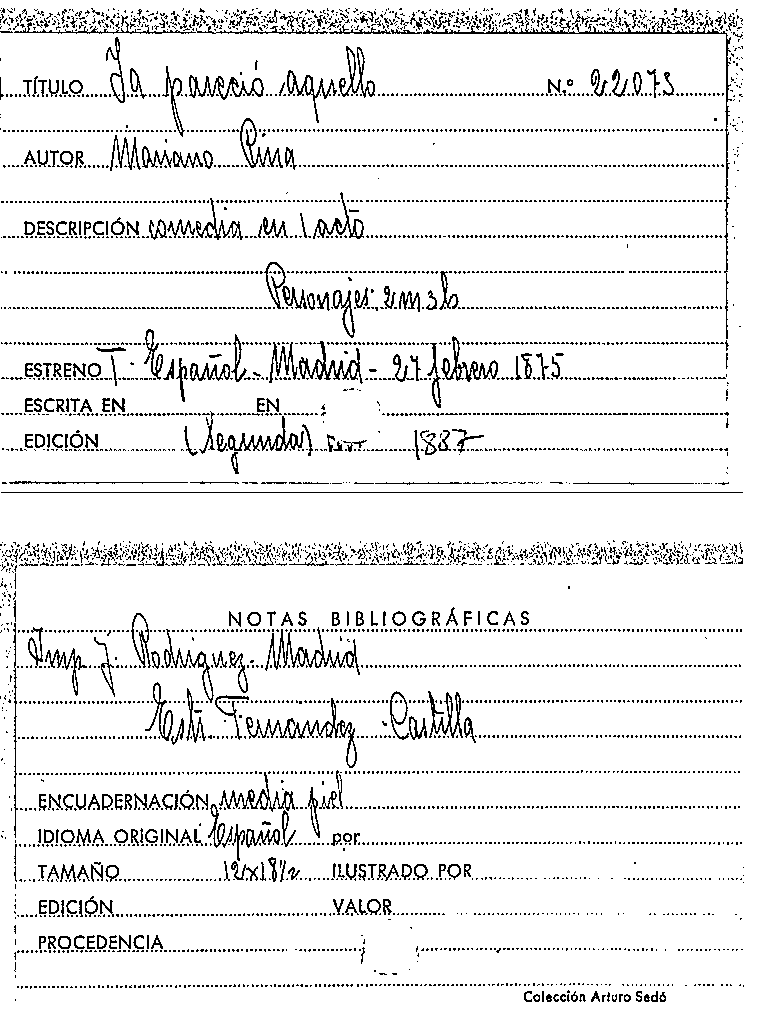 TÍTULO Ya pareció aquello N.º 22073
AUTOR Mariano Pina
DESCRIPCIÓN comedia en 1 acto
Personajes: 2m3b
ESTRENO T. Español - Madrid - 27 febrero 1875
ESCRITA EN EN
EDICIÓN (Segunda) 1887
NOTAS BIBLIOGRÁFICAS
Imp J. Rodriguez - Madrid
Estr. Fernandez - Castilla
ENCUADERNACIÓN media piel
IDIOMA ORIGINAL Español por
TAMAÑO 12x18½ ILUSTRADO POR
EDICIÓN VALOR
PROCEDENCIA
Colección Arturo Sedó